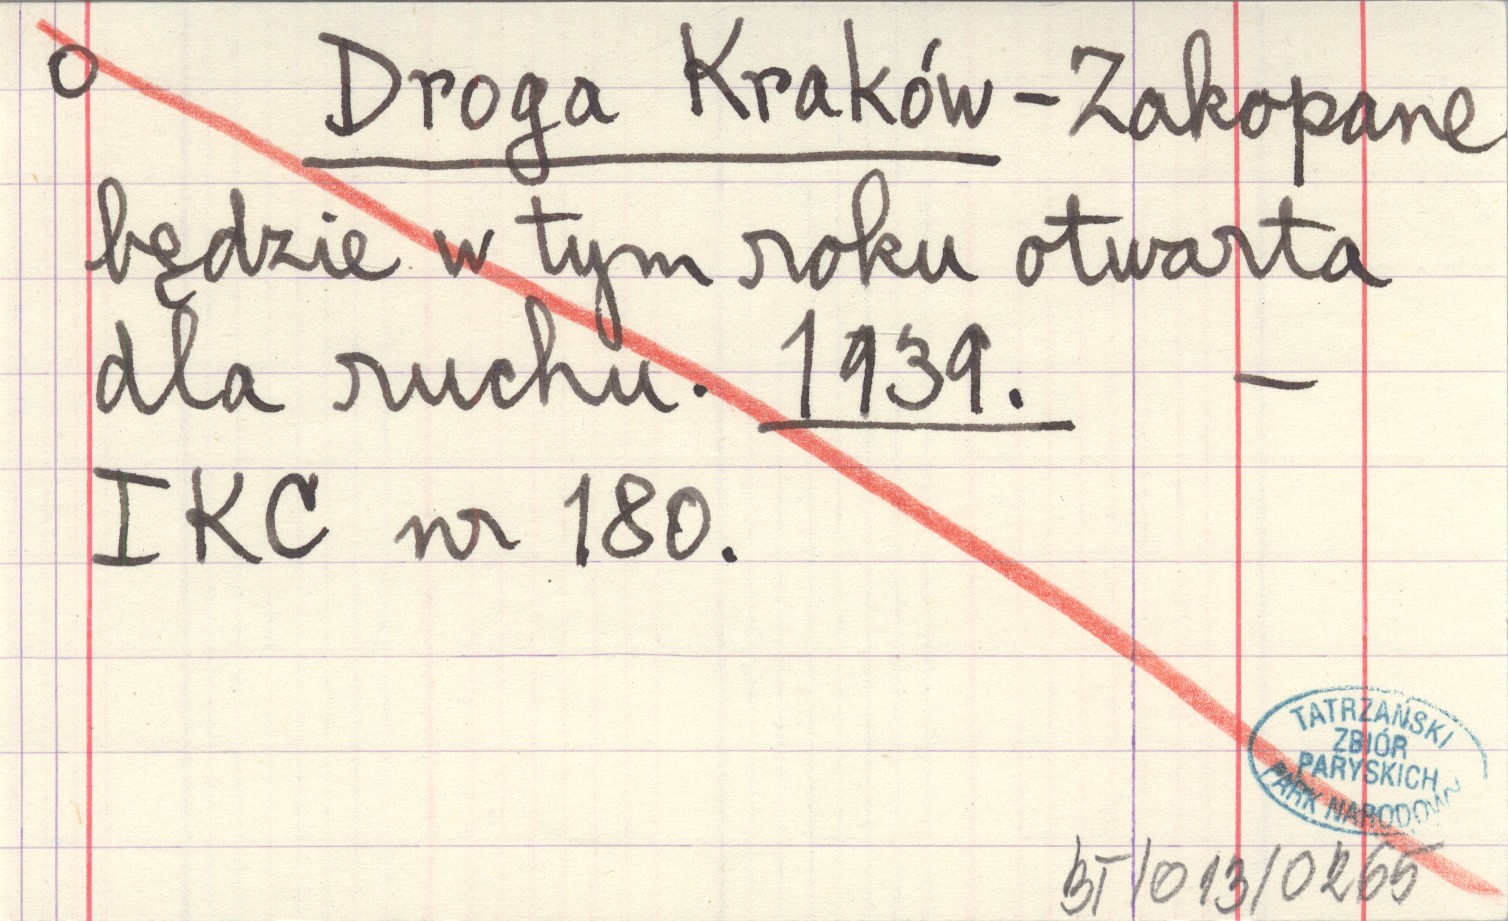 o Droga Kraków - Zakopane
będzie w tym roku otwarta
dla ruchu. 1939. –
IKC nr 180.
TATRZAŃSKI
ZBIÓR
PARYSKICH
PARK NARODOWY
BT/013/0265